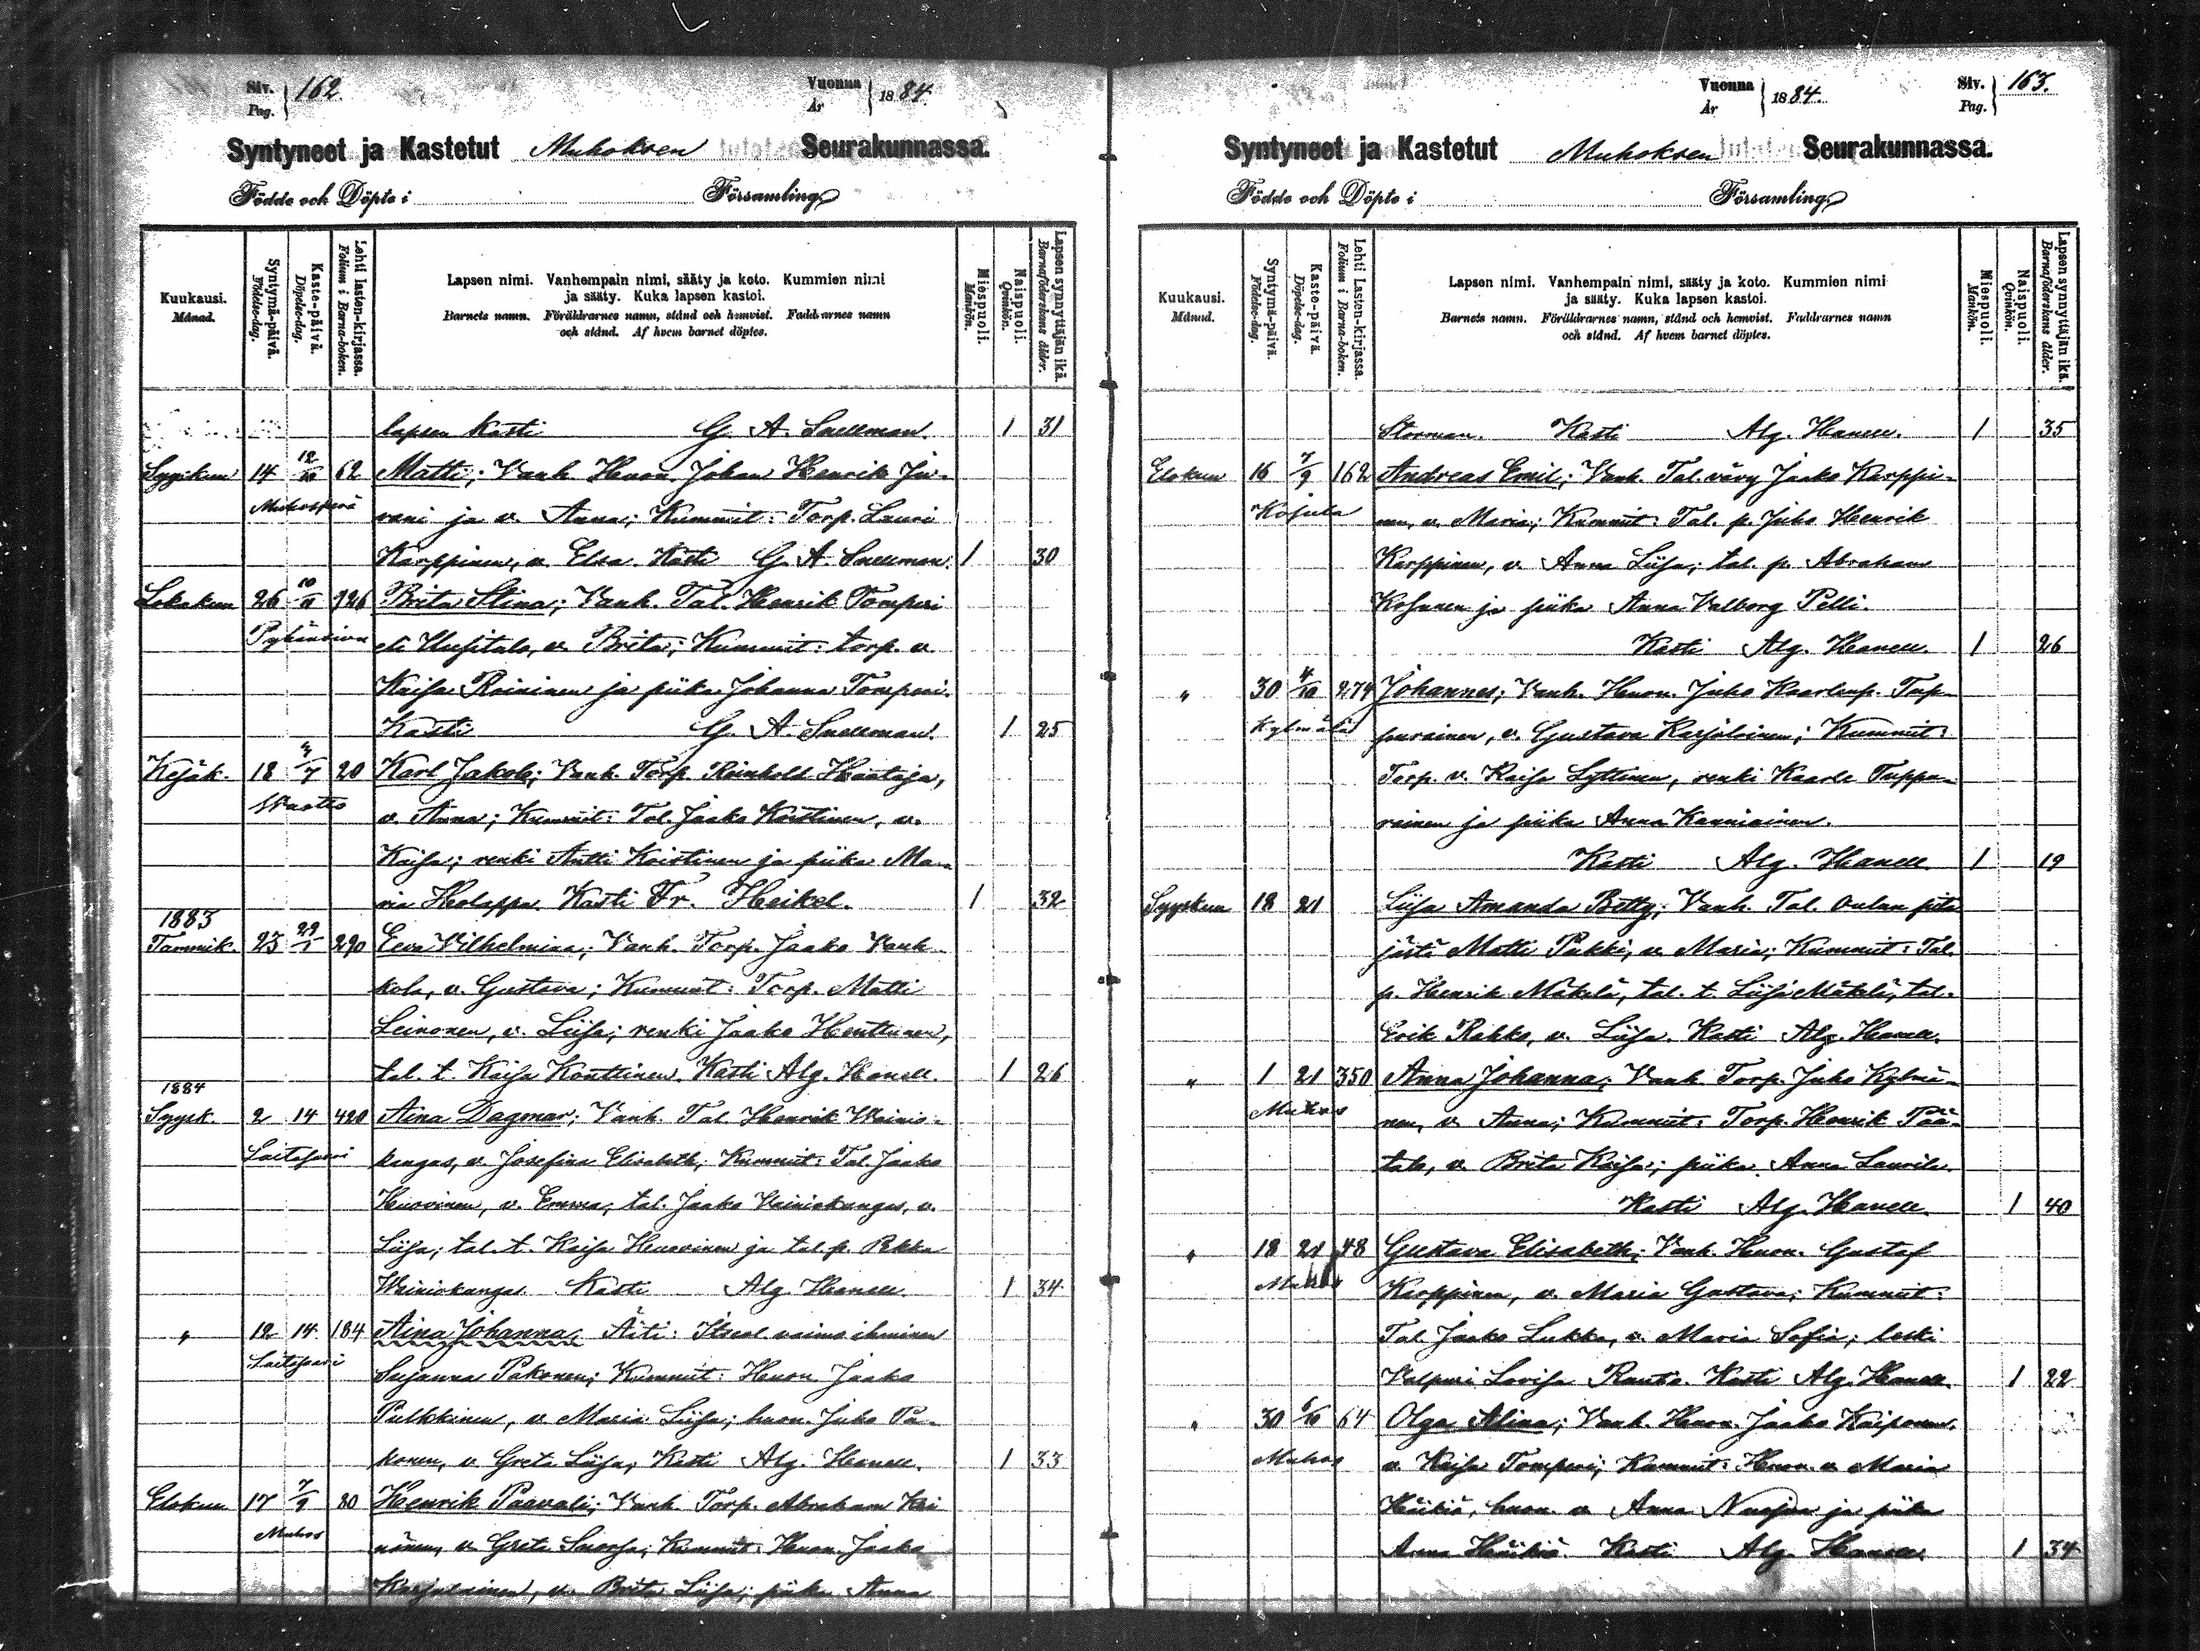 Siv. Pag. 162.
Vuonna År 1884.
Syntyneet ja Kastetut Muhoksen Seurakunnassa.
Födde och Döpte i Församling
Kuukausi. Månad.
Syntymä-päivä. Födelse-dag.
Kaste-päivä. Döpelse-dag.
Lehti lasten-kirjassa. Folium i Barna-boken.
Lapsen nimi. Vanhempain nimi, sääty ja koto. Kummien nimi
ja sääty. Kuka lapsen kastoi.
Barnets namn. Föräldrarnes namn, stånd och hemvist. Faddrarnes namn
och stånd. Af hvem barnet döptes.
Miespuoli. Mankön.
Naispuoli. Qvinkön.
Lapsen synnyttäjän ikä. Barnaföderskans ålder.
lapsen kasti G. A. Snellman. 1 31
Syyskuu 14 12/10 62 Matti; Vanh. Huon. Johan Henrik Ju-
Muhosperä
vani ja v. Anna; Kummit: Torp. Lauri
Karppinen, v. Elsa. Kasti G. A. Snellman. 1 30
Lokakuu 26 10/11 126 Brita Stina; Vanh. Tal. Henrik Tomperi
eli Uusitalo, v. Brita; Kummit: torp. v.
Kaisa Roininen ja piika Johanna Tomperi.
Kasti G. A. Snellman. 1 25
Kesäk. 18 /7 20 Karl Jakob; Vanh. Torp. Reinhold Haataja,
v. Anna; Kummit: Tal. Jaako Koistinen, v.
Kaisa; renki Antti Koistinen ja piika Ma-
ria Holappa. Kasti Fr. Heikel. 1 32
1883
Tammik. 23 29/1 290 Eeva Vilhelmina; Vanh. Torp. Jaako Vanh
kola, v. Gustava; Kummit: Torp. Matti
Leinonen, v. Liisa; renki Jaako Henttunen,
tal. t. Kaisa Konttinen. Kasti Alg. Hanell. 1 26
1884
Syysk. 2 14 420 Aina Dagmar; Vanh. Tal. Henrik Wainio-
Laitasaari
kangas, v. Josefina Elisabeth; Kummit: Tal. Jaako
Huovinen, v. Emma; tal. Jaako Wainiokangas, v.
Liisa; tal. t. Kaisa Huovinen ja tal. p. Pekka
Wainiokangas. Kasti Alg. Hanell. 1 34
" 12 14 184 Aina Johanna; Äiti: Itsell. vaimo ihminen
Laitasaari
Susanna Pakonen; Kummit: Huon. Jaako
Pulkkinen, v. Maria Liisa; huon. Juho Pa-
konen, v. Greta Liisa; Kasti Alg. Hanell. 1 33
Elokuu 17 7/9 80 Henrik Paavali; Vanh. Torp. Abraham Kai
Muhos
nänen, v. Greta; Kummit: Huon. Jaako
Karjalainen, v. Brita Liisa; piika Anna
Vuonna År 1884.
Siv. Pag. 163.
Syntyneet ja Kastetut Muhoksen Seurakunnassa.
Födde och Döpte i Församling
Kuukausi. Månad.
Syntymä-päivä. Födelse-dag.
Kaste-päivä. Döpelse-dag.
Lehti Lasten-kirjassa. Folium i Barna-boken.
Lapsen nimi. Vanhempain nimi, sääty ja koto. Kummien nimi
ja sääty. Kuka lapsen kastoi.
Barnets namn. Föräldrarnes namn, stånd och hemvist. Faddrarnes namn
och stånd. Af hvem barnet döptes.
Miespuoli. Mankön.
Naispuoli. Qvinkön.
Lapsen synnyttäjän ikä. Barnaföderskans ålder.
Storman. Kasti Alg. Hanell. 1 35
Elokuu 16 7/9 162 Andreas Emil; Vanh. Tal. vävy Jaako Karppi-
nen, v. Maria; Kummit: Tal. p. Juho Henrik
Karppinen, v. Anna Liisa; tal. p. Abraham
Kosunen ja piika Anna Valborg Pelli.
Kasti Alg. Hanell. 1 26
" 30 4/10 274 Johannes; Vanh. Huon. Juho Kaarlenp. Tup-
Kylmälä
purainen, v. Gustava Karjalainen; Kummit:
Torp. v. Kaisa Lyttinen, renki Kaarle Tuppu-
rainen ja piika Anna Kauniainen.
Kasti Alg. Hanell. 1 19
Syyskuu 18 21 Liisa Amanda Betty; Vanh. Tal. Oulun pitä
jästä Matti Pukki, v. Maria; Kummit: Tal.
p. Henrik Mäkelä, tal. t. Liisa Mäkelä, tal.
Erik Rahko, v. Liisa. Kasti Alg. Hanell.
" 1 21 350 Anna Johanna; Vanh. Torp. Juho Kylmä-
Muhos
nen, v. Anna; Kummit: Torp. Henrik Pää-
talo, v. Brita Kaisa; piika Anna Laurila.
Kasti Alg. Hanell. 1 40
" 18 21 48 Gustava Elisabeth; Vanh. Huon. Gustaf
Muhos
Karppinen, v. Maria Gustava; Kummit:
Tal. Jaako Lukka, v. Maria Sofia; leski
Valpuri Lovisa Rauto. Kasti Alg. Hanell. 1 22
" 30 5/10 64 Olga Alina; Vanh. Huon. Jaako Kaiponen.
Muhos
v. Kaisa Tomperi; Kummit: Huon. v. Maria
Häikiö, huon. v. Anna ja piika
Anna Häikiö. Kasti Alg. Hanell. 1 34